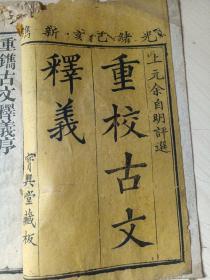 光緒己亥新鐫
上元余自明評選
重校古文
釋義
寶興堂藏板
重鐫古文釋義序